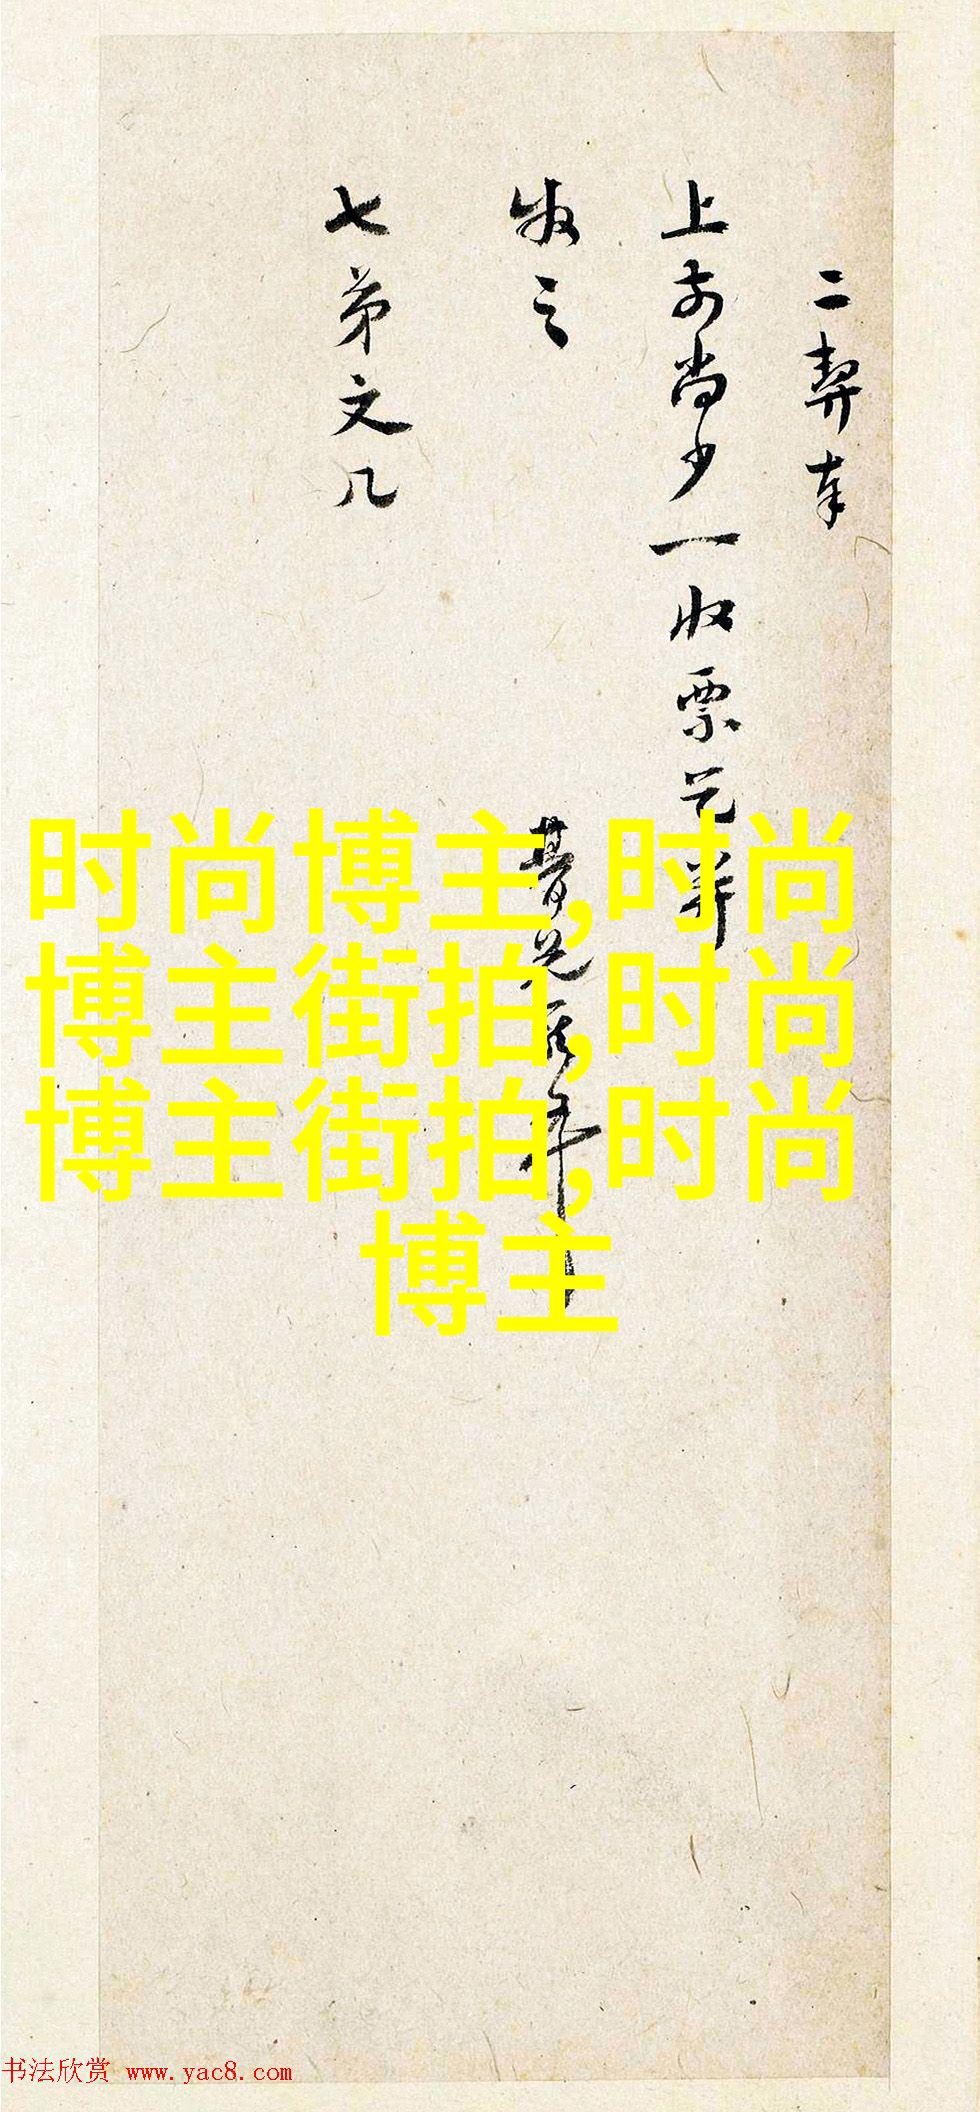 二契奉
上前尚少一收票兄并
收之
七弟文几
时尚博主,时尚
博主街拍,时尚
博主街拍,时尚
博主
书法欣赏 www.yac8.com